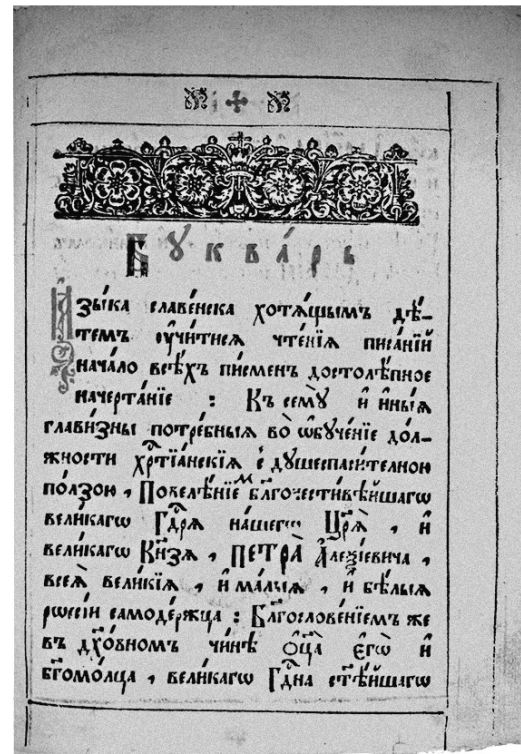 Бꙋква́рь
Ꙗ҆зы́ка славе́нска хотѧ́щымъ дѣ́-
темъ ᲂу҆чи́тисѧ чте́нїѧ писа́нїй
нача́ло всѣ́хъ пи́сменъ достолѣ́пное
начерта́нїе : Къ семꙋ̀ и҆ и҆ны́ѧ
глави́зны потре́бныѧ во ѡ҆бꙋче́нїе до́л-
жности хрⷭ҇тїа́нскїѧ с̾ дꙋшеспаси́телною
по́лзою , Повелѣ́нїемъ бл҃гочести́вѣйшагѡ
вели́кагѡ Гдⷭ҇рѧ на́шегѡ Цр҃ѧ̀ , и҆
вели́кагѡ Кн҃зѧ , ПЕТРА̀ А҆леѯі́евича ,
всеѧ̀ вели́кїѧ , и҆ ма́лыѧ , и҆ бѣ́лыѧ
рѡссі́и самоде́ржца : Бл҃гослове́нїемъ же
въ дх҃о́вномъ чи́нѣ ѻ҆ц҃а̀ є҆гѡ̀ и҆
бг҃омо́лца , вели́кагѡ Гдⷭ҇на ст҃ѣ́йшагѡ